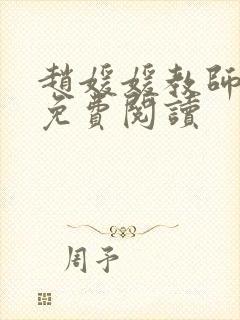 趙媛媛教師
免費閱讀
周予